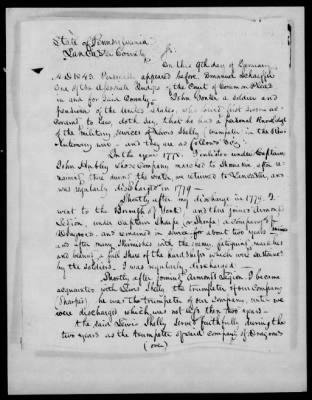 State of Pennsylvania
Lancaster County Ss.
On this 9th day of January
A.D. 1843. Personally appeared before Emanuel Schaeffer
One of the Associate Judges of the Court of Common Pleas
in and for said County, John a soldier and
pensioner of the United States, who being first sworn
according to law, doth say, that he had a personal Knowledge
of the military services of Lewis Shelly (trumpeter in the Rev-
olutionary war - and they are as follows Viz:
In the year 177 I enlisted under Captain
John whose Company marched to after re-
maining there during the we returned to Lancaster, and
was regularly discharged in 1779 -
Shortly after my discharge in 1779. I
went to the Borough of York, and there joined Armand's
Legion, under Captain Sharp, in Sharp's company of
Dragoons, and remained in service for about two years
and after many skirmishes with the enemy, fatiguing marches
and bearing a full share of the hardships which were sustained
by the soldiers, I was regularly discharged -
Shortly after joining Armand's Legion, I became
acquainted with Lewis Shelly the trumpeter of our Company
(Sharpes) he was the trumpeter of our Company, until we
were discharged which was not less than two years -
The said Lewis Shelly served faithfully during the
two years as the trumpeter of said company of Dragoons
(over)